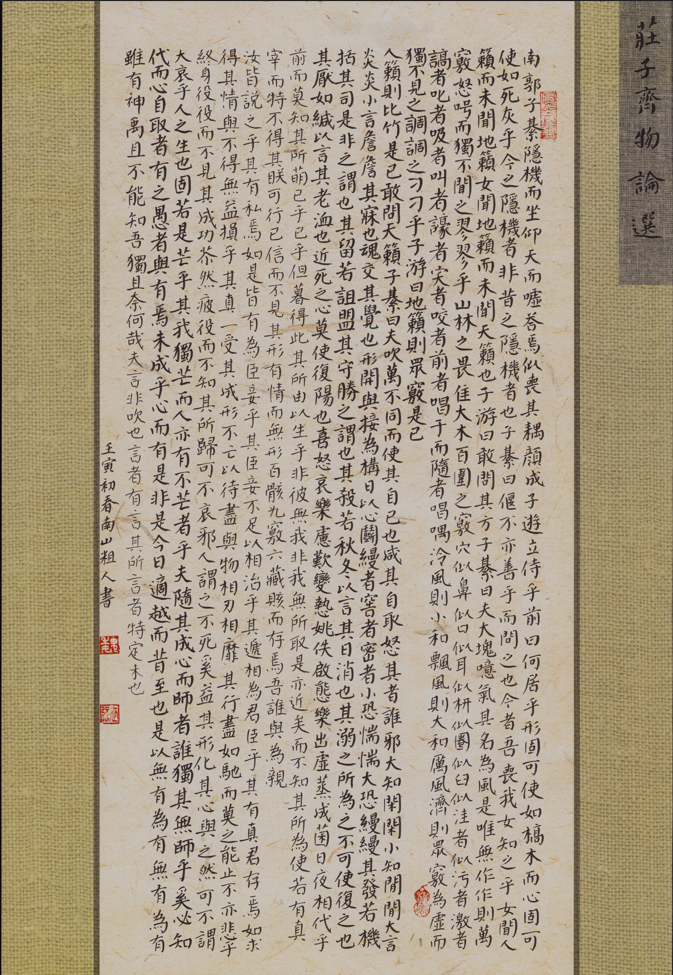 莊子齊物論選
南郭子綦隱機而坐仰天而噓嗒焉似喪其耦顏成子遊立侍乎前曰何居乎形固可使如槁木而心固可
使如死灰乎今之隱機者非昔之隱機者也子綦曰偃不亦善乎而問之也今者吾喪我女知之乎女聞人
籟而未聞地籟女聞地籟而未聞天籟也子游曰敢問其方子綦曰夫大塊噫氣其名為風是唯無作作則萬
竅怒呺而獨不聞之翏翏乎山林之畏佳大木百圍之竅穴似鼻似口似耳似枅似圈似臼似洼者似污者激者
謞者叱者吸者叫者譹者宎者咬者前者唱于而隨者唱喁泠風則小和飄風則大和厲風濟則眾竅為虛而
獨不見之調調之刁刁乎子游曰地籟則眾竅是已
人籟則比竹是已敢問天籟子綦曰夫吹萬不同而使其自己也咸其自取怒其者誰邪大知閑閑小知閒閒大言
炎炎小言詹詹其寐也魂交其覺也形開與接為構日以心鬭縵者窖者密者小恐惴惴大恐縵縵其發若機
括其司是非之謂也其留若詛盟其守勝之謂也其殺若秋冬以言其日消也其溺之所為之不可使復之也
其厭如緘以言其老洫也近死之心莫使復陽也喜怒哀樂慮歎變慹姚佚啟態樂出虛蒸成菌日夜相代乎
前而莫知其所萌已乎已乎但暮得此其所由以生乎非彼無我非我無所取是亦近矣而不知其所為使若有真
宰而特不得其眹可行已信而不見其形有情而無形百骸九竅六藏賅而存焉吾誰與為親
汝皆說之乎其有私焉如是皆有為臣妾乎其臣妾不足以相治乎其遞相為君臣乎其有真君存焉如求
得其情與不得無益損乎其真一受其成形不亡以待盡與物相刃相靡其行盡如馳而莫之能止不亦悲乎
終身役役而不見其成功苶然疲役而不知其所歸可不哀邪人謂之不死奚益其形化其心與之然可不謂
大哀乎人之生也固若是芒乎其我獨芒而人亦有不芒者乎夫隨其成心而師者誰獨其無師乎奚必知
代而心自取者有之愚者與有焉未成乎心而有是非是今日適越而昔至也是以無有為有無有為有
雖有神禹且不能知吾獨且奈何哉夫言非吹也言者有言其所言者特定未也
壬寅初春南山粗人書